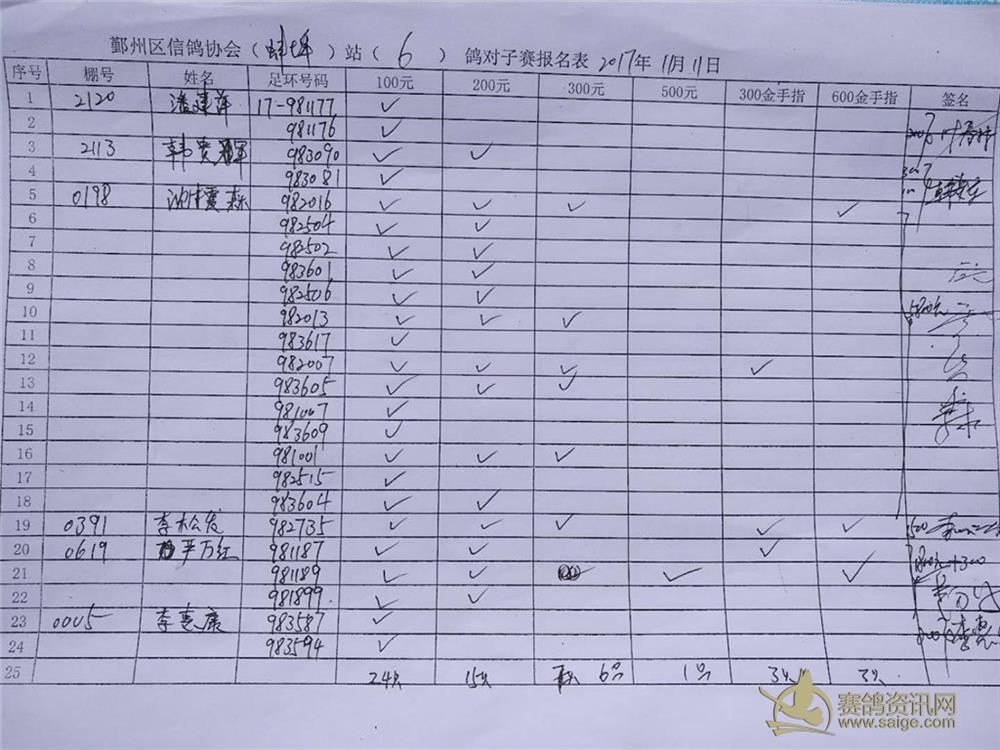 鄞州区信鸽协会（蚌埠）站（6）鸽对子赛报名表 2017年11月11日
序号 棚号 姓名 足环号码 100元 200元 300元 500元 300金手指 600金手指 签名
1 2120 潘建萍 17-981177 ✓
2 981176 ✓
3 2113 韩贵 983090 ✓ ✓
4 983081 ✓
5 0198 982016 ✓ ✓ ✓ ✓
6 982504 ✓ ✓
7 982502 ✓ ✓
8 983601 ✓ ✓
9 982506 ✓ ✓
10 982013 ✓ ✓ ✓
11 983617 ✓
12 982007 ✓ ✓ ✓ ✓
13 983605 ✓ ✓ ✓
14 981007 ✓
15 983609 ✓
16 981001 ✓ ✓ ✓
17 982515 ✓
18 983604 ✓ ✓
19 0391 李松发 982735 ✓ ✓ ✓ ✓ ✓
20 0619 万红 981187 ✓ ✓ ✓
21 981189 ✓ ✓ ✓ ✓
22 981899 ✓ ✓
23 0005 李惠康 983587 ✓
24 983594 ✓
25 24只 15只 6只 1只 3只 3只
赛鸽资讯网
www.saige.com